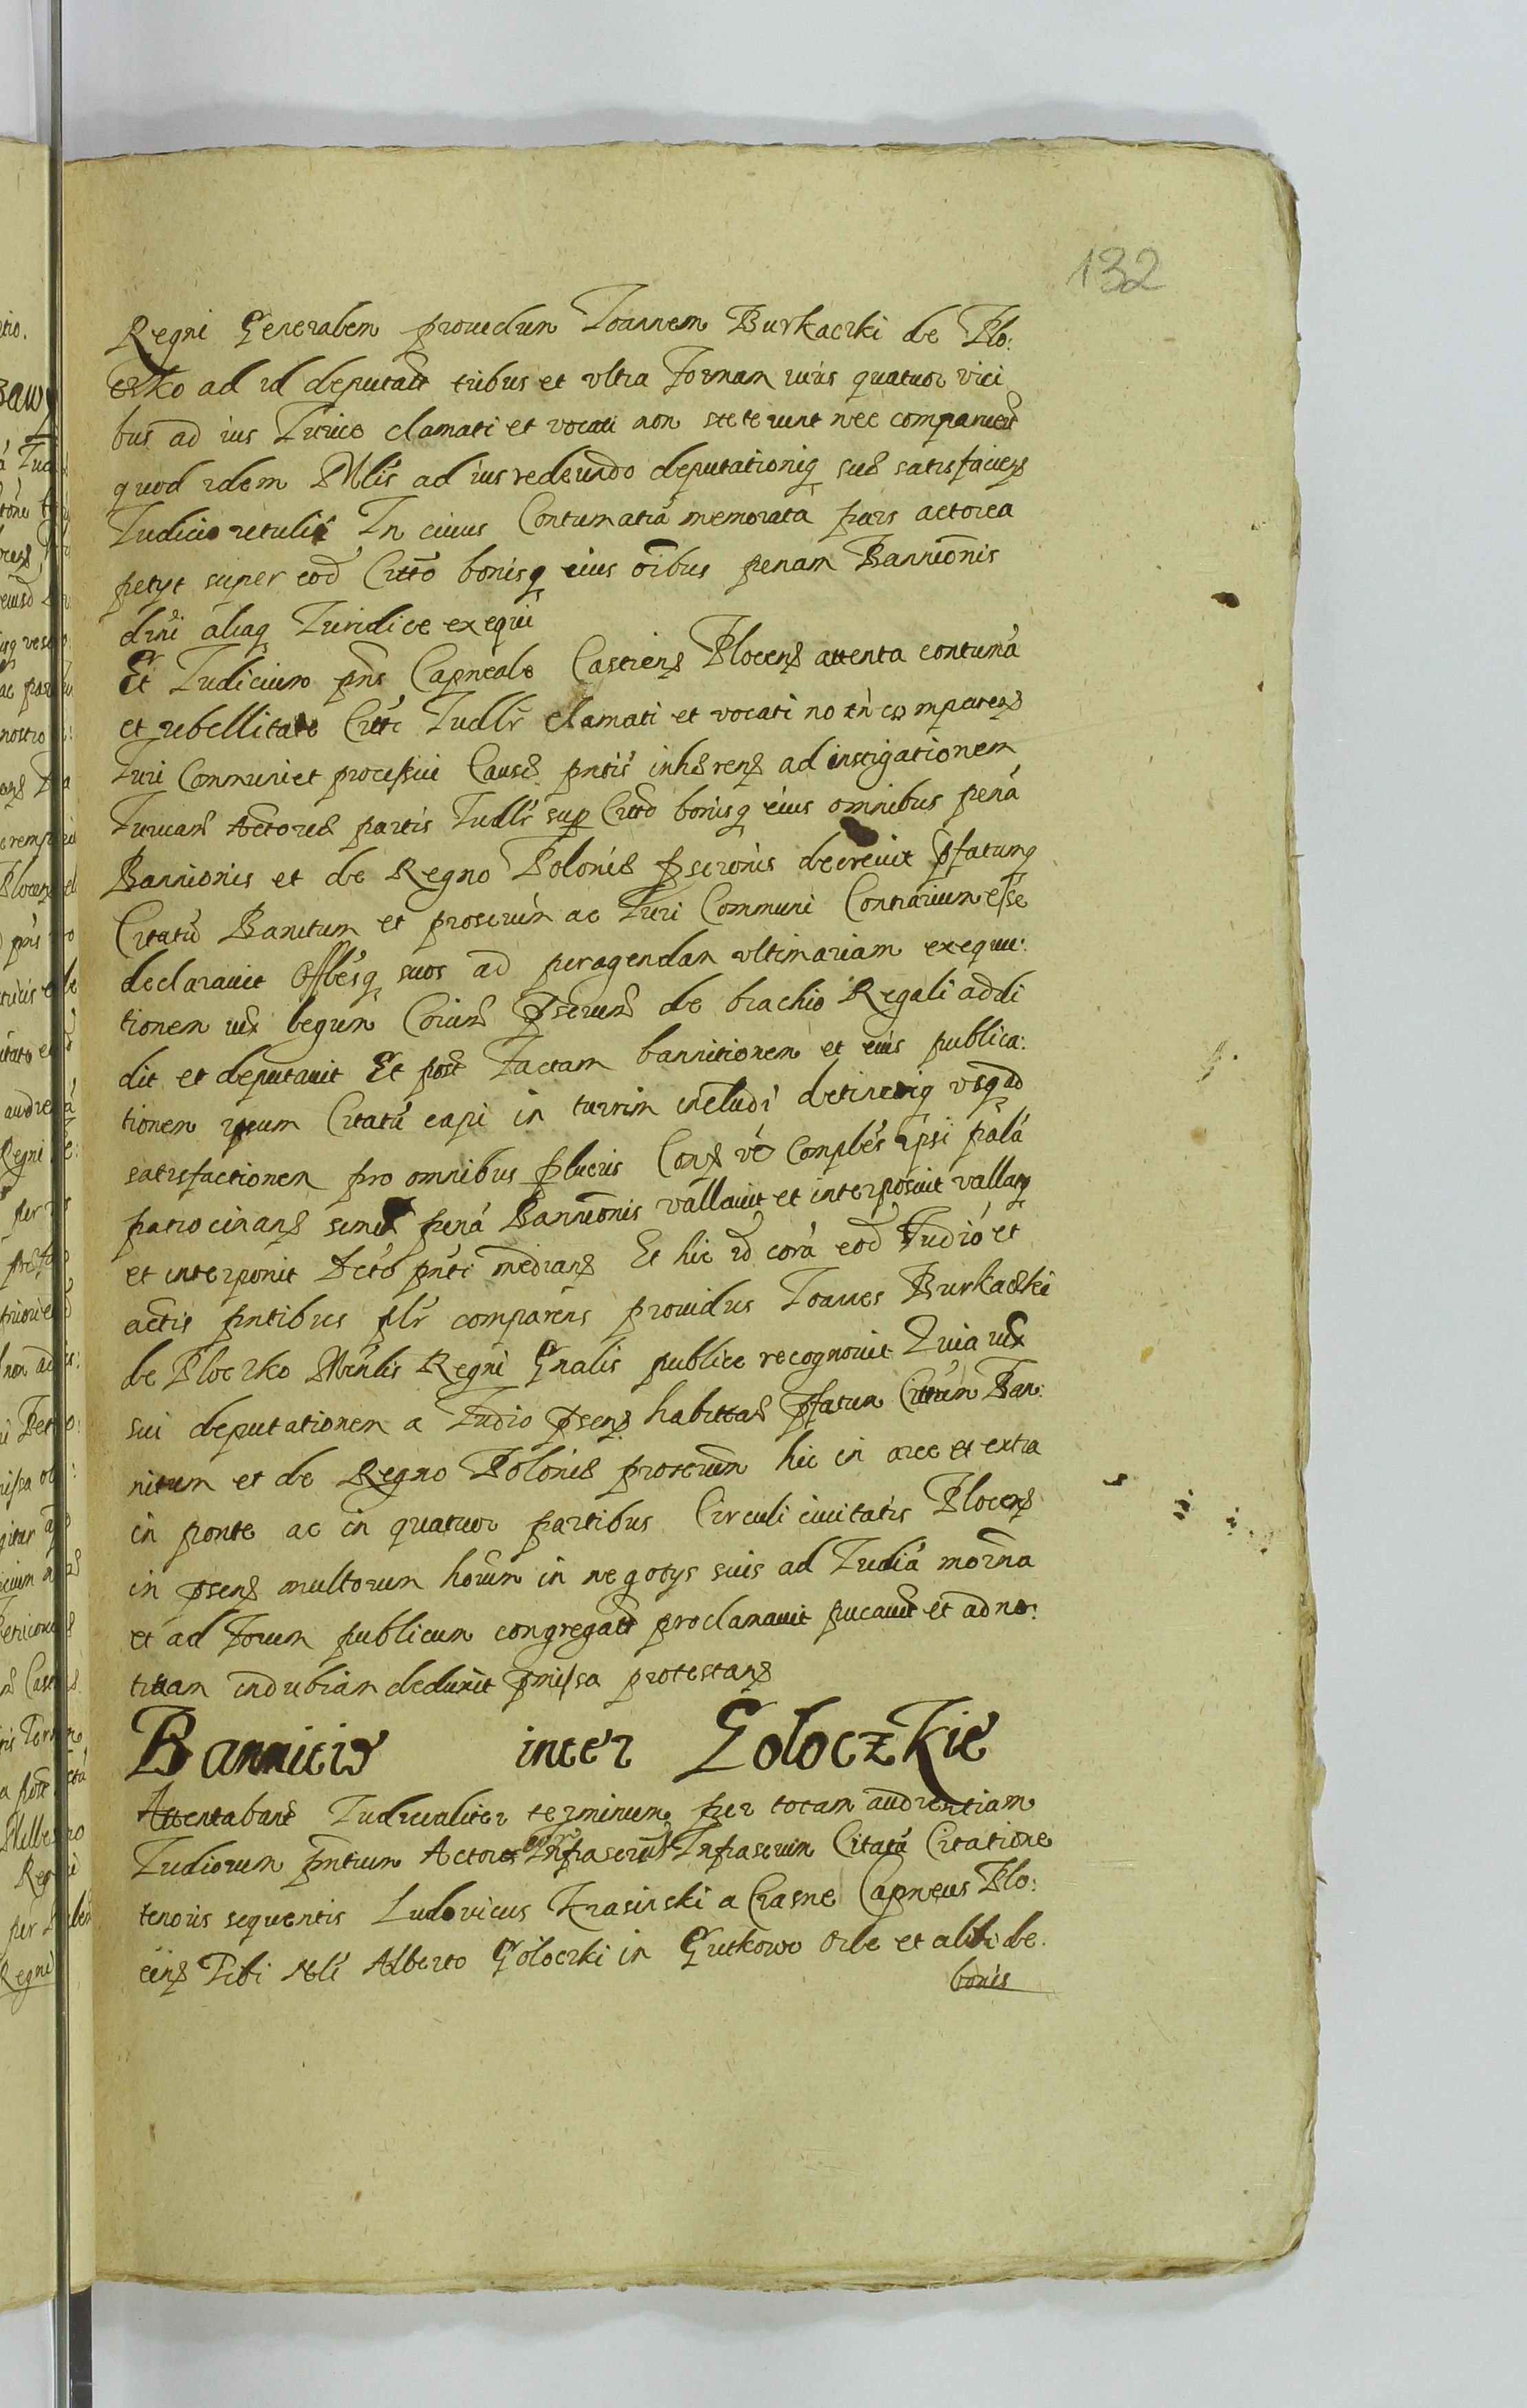 132
Regni Generalem providum Joannem Burkaczki de Plo:
czko ad id deputatū tribus et ultra Formam iuris quatuor vici
bus ad ius Juridice clamati et vocati non steterunt nec comparuerūt
quod idem Mlis ad ius redeundo deputationiq suæ satisfaciens
Judicio retulit In cuius Contumatiā memorata pars actorea
petyt super eod Cttō bonisq eius oībus penam Bannitionis
aliaq Juridice exequi
Et Judicium pns Capneale Castrens Plocens attenta contumā
et rebellitate Citti Judlr clamati et vocati non comparens
Juri Communi et processui Causæ pntis inhærens ad instigationem
Actoreæ partis Judlr sup Cittō bonisq eius omnibus penā
Bannionis et de Regno Poloniæ pscronis decrevit pfatumq
Citatū Banitum et proscrūm ac Juri Communi Contrarium esse
declaravit Offlesq suos ad peragendam ultimariam exequu:
tionem iux legum pscrunt de brachio Regali addi
dit et deputavit Et post Factam bannitionem et eius publica:
tionem ipsum Citatū capi in turrim includi detineriq usq ad
satisfactionem pro omnibus plucris Cons vō Complēs ipsi palā
patrocinans simili penā Bannionis vallavit et interposuit vallatq
et interponit Decto pnti medians Et hic id corā eod Judio et
actis pntibus plr comparens providus Joannes Burkaczki
de Ploczko Mlis Regni Gnalis publice recognovit Quia iux
sui deputationem a Judio psens habitas pfatum Cittum Ban:
nitum et de Regno Poloniæ proscrum hic in arce et extra
in ponte ac in quatuor partibus Circuli civitatis Plocens
in psens multorum hoīum in negotys suis ad Judia
et ad Forum publicum congregatū proclamavit et ad no:
titiam indubiam deduxit pmissa protestans
Bannitio inter Goloczkie
Attentabant Judicialiter terminum per totam audientiam
Judiorum pntium Actores Infrascrūt Infrascrūm Citatū Citatione
tenoris sequentis Ludovicus Krasinski a Crasne Capneus Plo:
cens Tibi Nli Alberto Goloczki in Gutkowo Orle et alibi de
bonis